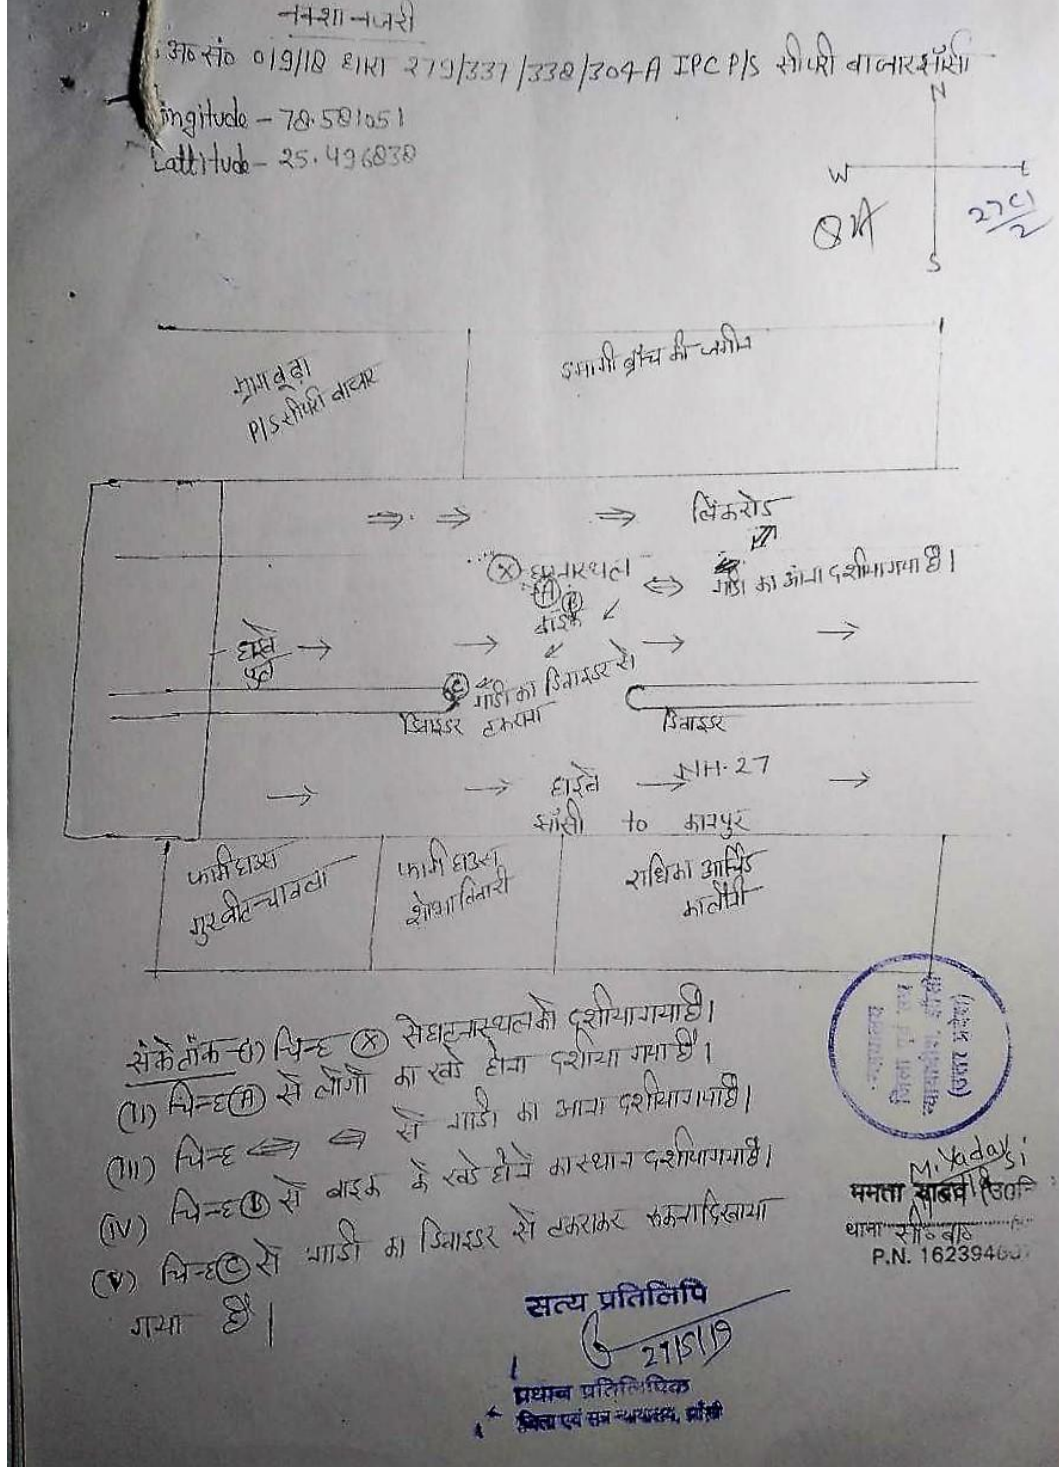 नक्शा नजरी
अ० सं० 019/18 धारा 279/337/338/304A IPC P/S सीपरी बाजार झाँसी
ongitude - 78.581051
Lattitude - 25.496838
N
W
S
27C1/2
ग्राम बूढ़ा
P/S सीपरी बाजार
इमामी ब्रांच की जमीन
लिंकरोड
X घटनास्थल
गाडी का आना दर्शाया गया है।
A B
बाइक
हाइवे
पुल
C गाडी का डिवाइडर से
टकराना
डिवाइडर
डिवाइडर
हाईवे NH-27
झाँसी to कानपुर
फार्म हाउस
गुरमीत चावला
फार्म हाउस
शोभा तिवारी
राधिका आर्चिड
कालौनी
संकेतांक - (I) चिन्ह X से घटनास्थल को दर्शाया गया है।
(II) चिन्ह A से लोगो का खडे होना दर्शाया गया है।
(III) चिन्ह से गाडी का आना दर्शाया गया है।
(IV) चिन्ह B से बाइक के खडे होने का स्थान दर्शाया गया है।
(V) चिन्ह C से गाडी का डिवाइडर से टकराकर रूकना दिखाया
गया है।
M. Yadav Si
ममता यादव (उ०नि
थाना सी० बा०
P.N. 162394
सत्य प्रतिलिपि
27/5/19
प्रधान प्रतिलिपिक
जिला एवं सत्र न्यायालय, झाँसी